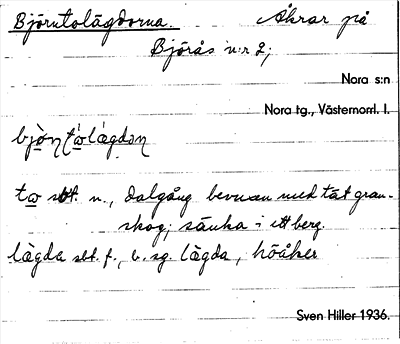 Björntolägdorna. Åkrar på
Björås n:r 2;
Nora s:n
Nora tg., Västernorrl. l.
bjò̱ṇta̱wlægdạṇ
ta̱w sbt. n., dalgång bevuxen med tät gran-
skog; sänka i ett berg.
lægda sbt. f., b. sg. lægda, höåker
Sven Hiller 1936.